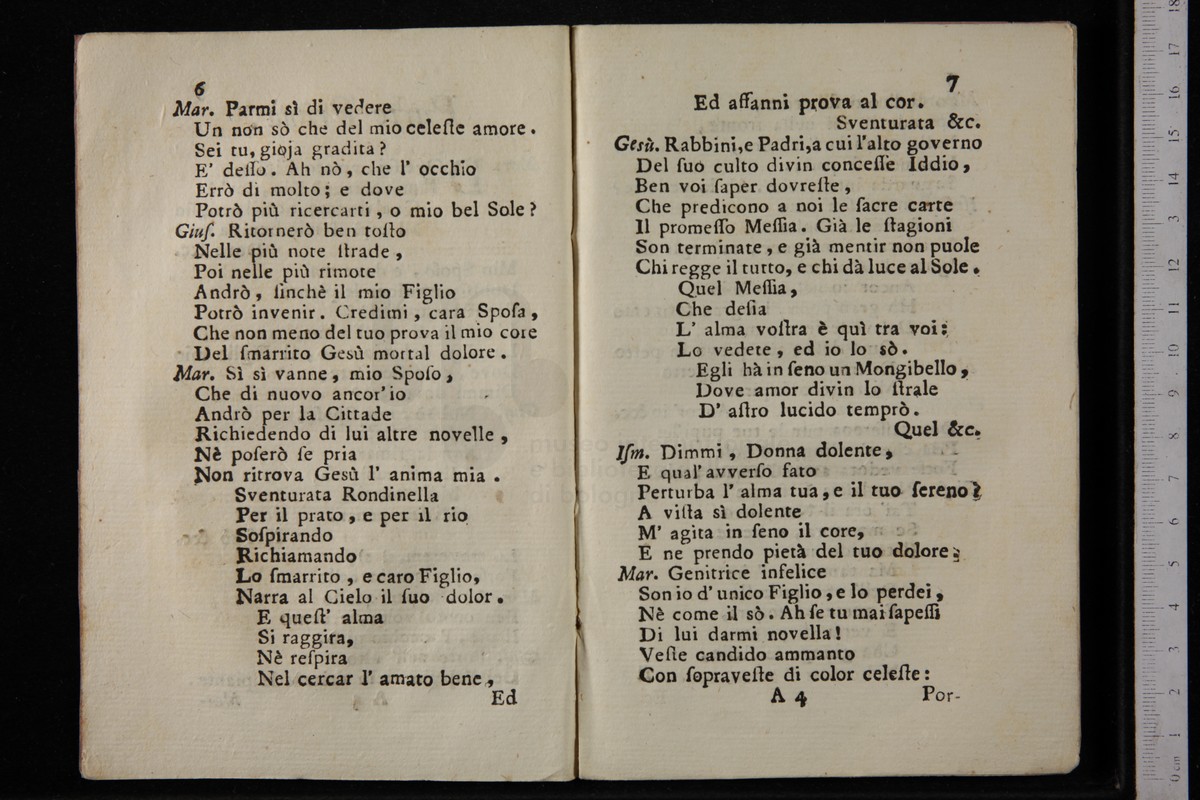 6
Mar. Parmi sì di vedere
Un non sò che del mio celeſte amore.
Sei tu, gioja gradita?
E' deſſo. Ah nò, che l' occhio
Errò di molto; e dove
Potrò più ricercarti, o mio bel Sole?
Giuſ. Ritornerò ben toſto
Nelle più note ſtrade,
Poi nelle più rimote
Andrò, ſinchè il mio Figlio
Potrò invenir. Credimi, cara Spoſa,
Che non meno del tuo prova il mio core
Del ſmarrito Gesù mortal dolore.
Mar. Sì sì vanne, mio Spoſo,
Che di nuovo ancor' io
Andrò per la Cittade
Richiedendo di lui altre novelle,
Nè poſerò ſe pria
Non ritrova Gesù l' anima mia.
Sventurata Rondinella
Per il prato, e per il rio
Soſpirando
Richiamando
Lo ſmarrito, e caro Figlio,
Narra al Cielo il ſuo dolor.
E queſt' alma
Si raggira,
Nè reſpira
Nel cercar l' amato bene,
Ed
7
Ed affanni prova al cor.
Sventurata &c.
Gesù. Rabbini, e Padri, a cui l'alto governo
Del ſuo culto divin conceſſe Iddio,
Ben voi ſaper dovreſte,
Che predicono a noi le ſacre carte
Il promeſſo Meſſia. Già le ſtagioni
Son terminate, e già mentir non puole
Chi regge il tutto, e chi dà luce al Sole.
Quel Meſſia,
Che deſia
L' alma voſtra è quì tra voi:
Lo vedete, ed io lo sò.
Egli hà in ſeno un Mongibello,
Dove amor divin lo ſtrale
D' aſtro lucido temprò.
Quel &c.
Iſm. Dimmi, Donna dolente,
E qual' avverſo fato
Perturba l' alma tua, e il tuo ſereno?
A viſta sì dolente
M' agita in ſeno il core,
E ne prendo pietà del tuo dolore:
Mar. Genitrice infelice
Son io d' unico Figlio, e lo perdei,
Nè come il sò. Ah ſe tu mai ſapeſſi
Di lui darmi novella!
Veſte candido ammanto
Con ſopraveſte di color celeſte:
A 4
Por-